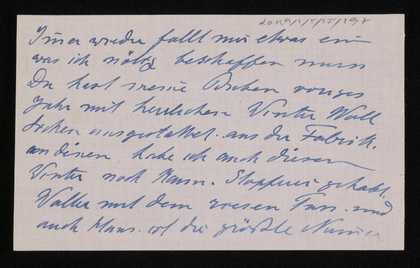 Immer wieder fällt mir etwas ein
was ich nötig beschaffen muss
Du hast meine Buben voriges
Jahr mit herrlichen Winter Woll
Socken ausgestattet. aus der Fabrik.
an denen habe ich auch diesen
Winter noch kaum Stopferei gehabt.
Walter mit dem Fuss. und
auch Klaus. ist die größte Numer